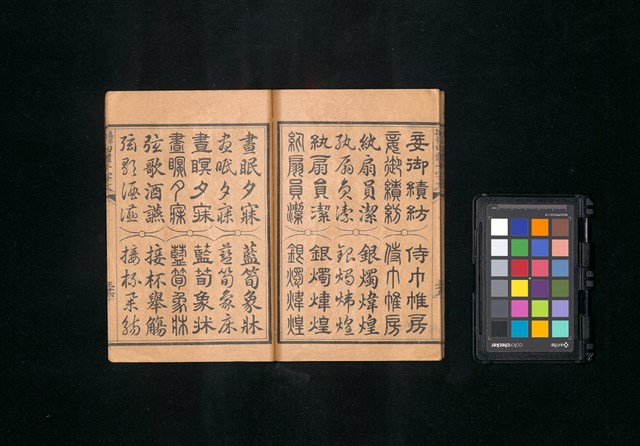 妾御績紡 侍巾帷房
妾御績紡 侍巾帷房
紈扇員潔 銀燭煒煌
紈扇員潔 銀燭煒煌
紈扇員潔 銀燭煒煌
紈扇員潔 銀燭煒煌
晝眠夕寐 藍筍象牀
晝眠夕寐 藍筍象床
晝瞑夕寐 藍筍象牀
晝瞑夕寐 藍筍象牀
弦歌酒讌 接杯舉觴
弦歌酒讌 接杯舉觴
colorchecker
x-rite